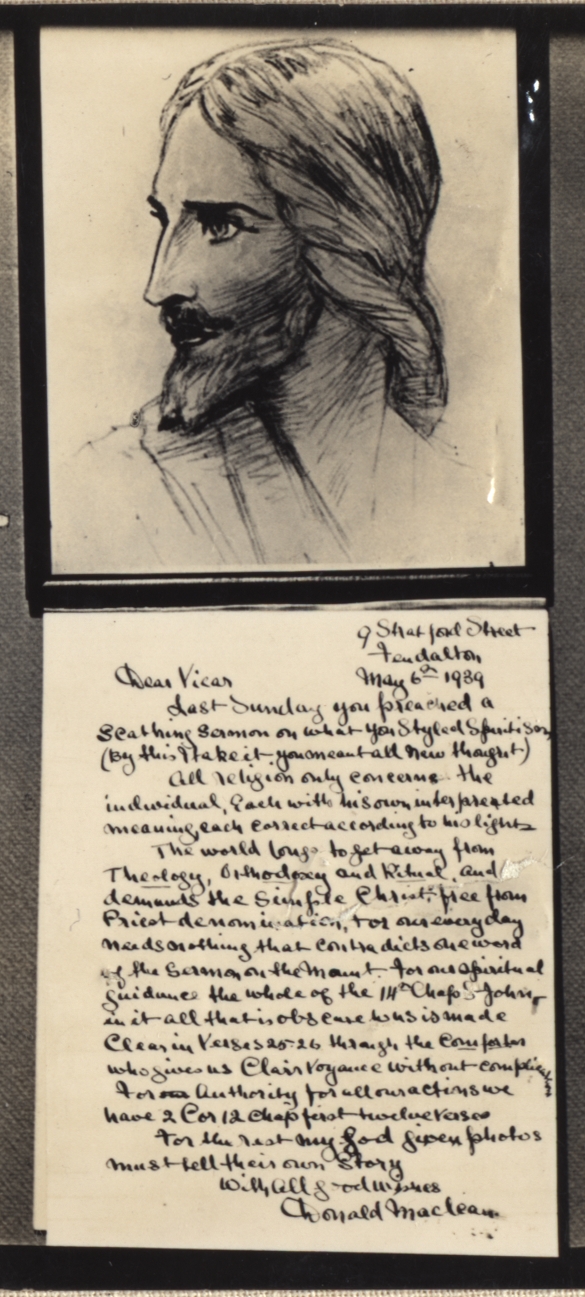 9 Stratford Street
Fendalton
May 6th 1939
Dear Vicar
Last Sunday you preached a
Scathing Sermon on what you Styled Spiritism
(By this I take it you meant all New thought)
All religion only concerns the
individual, Each with his own interpreted
meaning, each correct according to his lights
The world longs to get away from
Theology, Orthodoxy and Ritual, and
demands the Simple Christ, free from
Priest denomination, For our everyday
needs nothing that contradicts one word
of the Sermon on the Mount. For our Spiritual
guidance the whole of the 14th Chap St John,
in it all that is obscure to us is made
Clear in Verses 25-26 through the Comforter
who gives us Clairvoyance without
For our Authority for all our actions we
have 2 Cor 12 Chap first twelve verses
For the rest my God given photos
must tell their own Story
With all good wishes
Donald Maclean